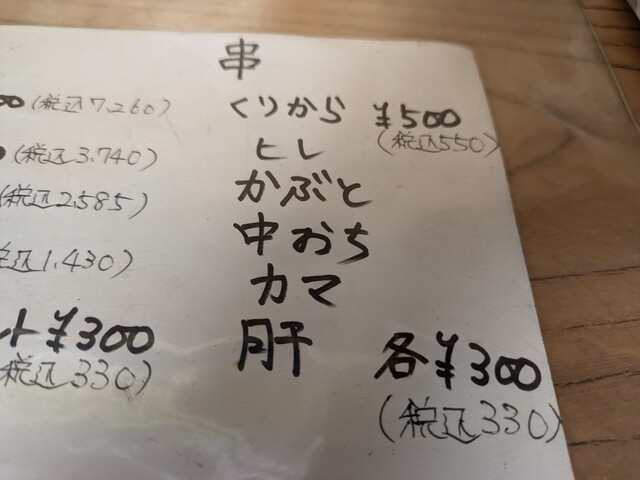 串
くりから ¥500
(税込550)
ヒレ
かぶと
中おち
カマ
肝 各¥300
(税込330)
00(税込7,260)
(税込3,740)
(税込2,585)
税込1,430)
ト¥300
(税込330)